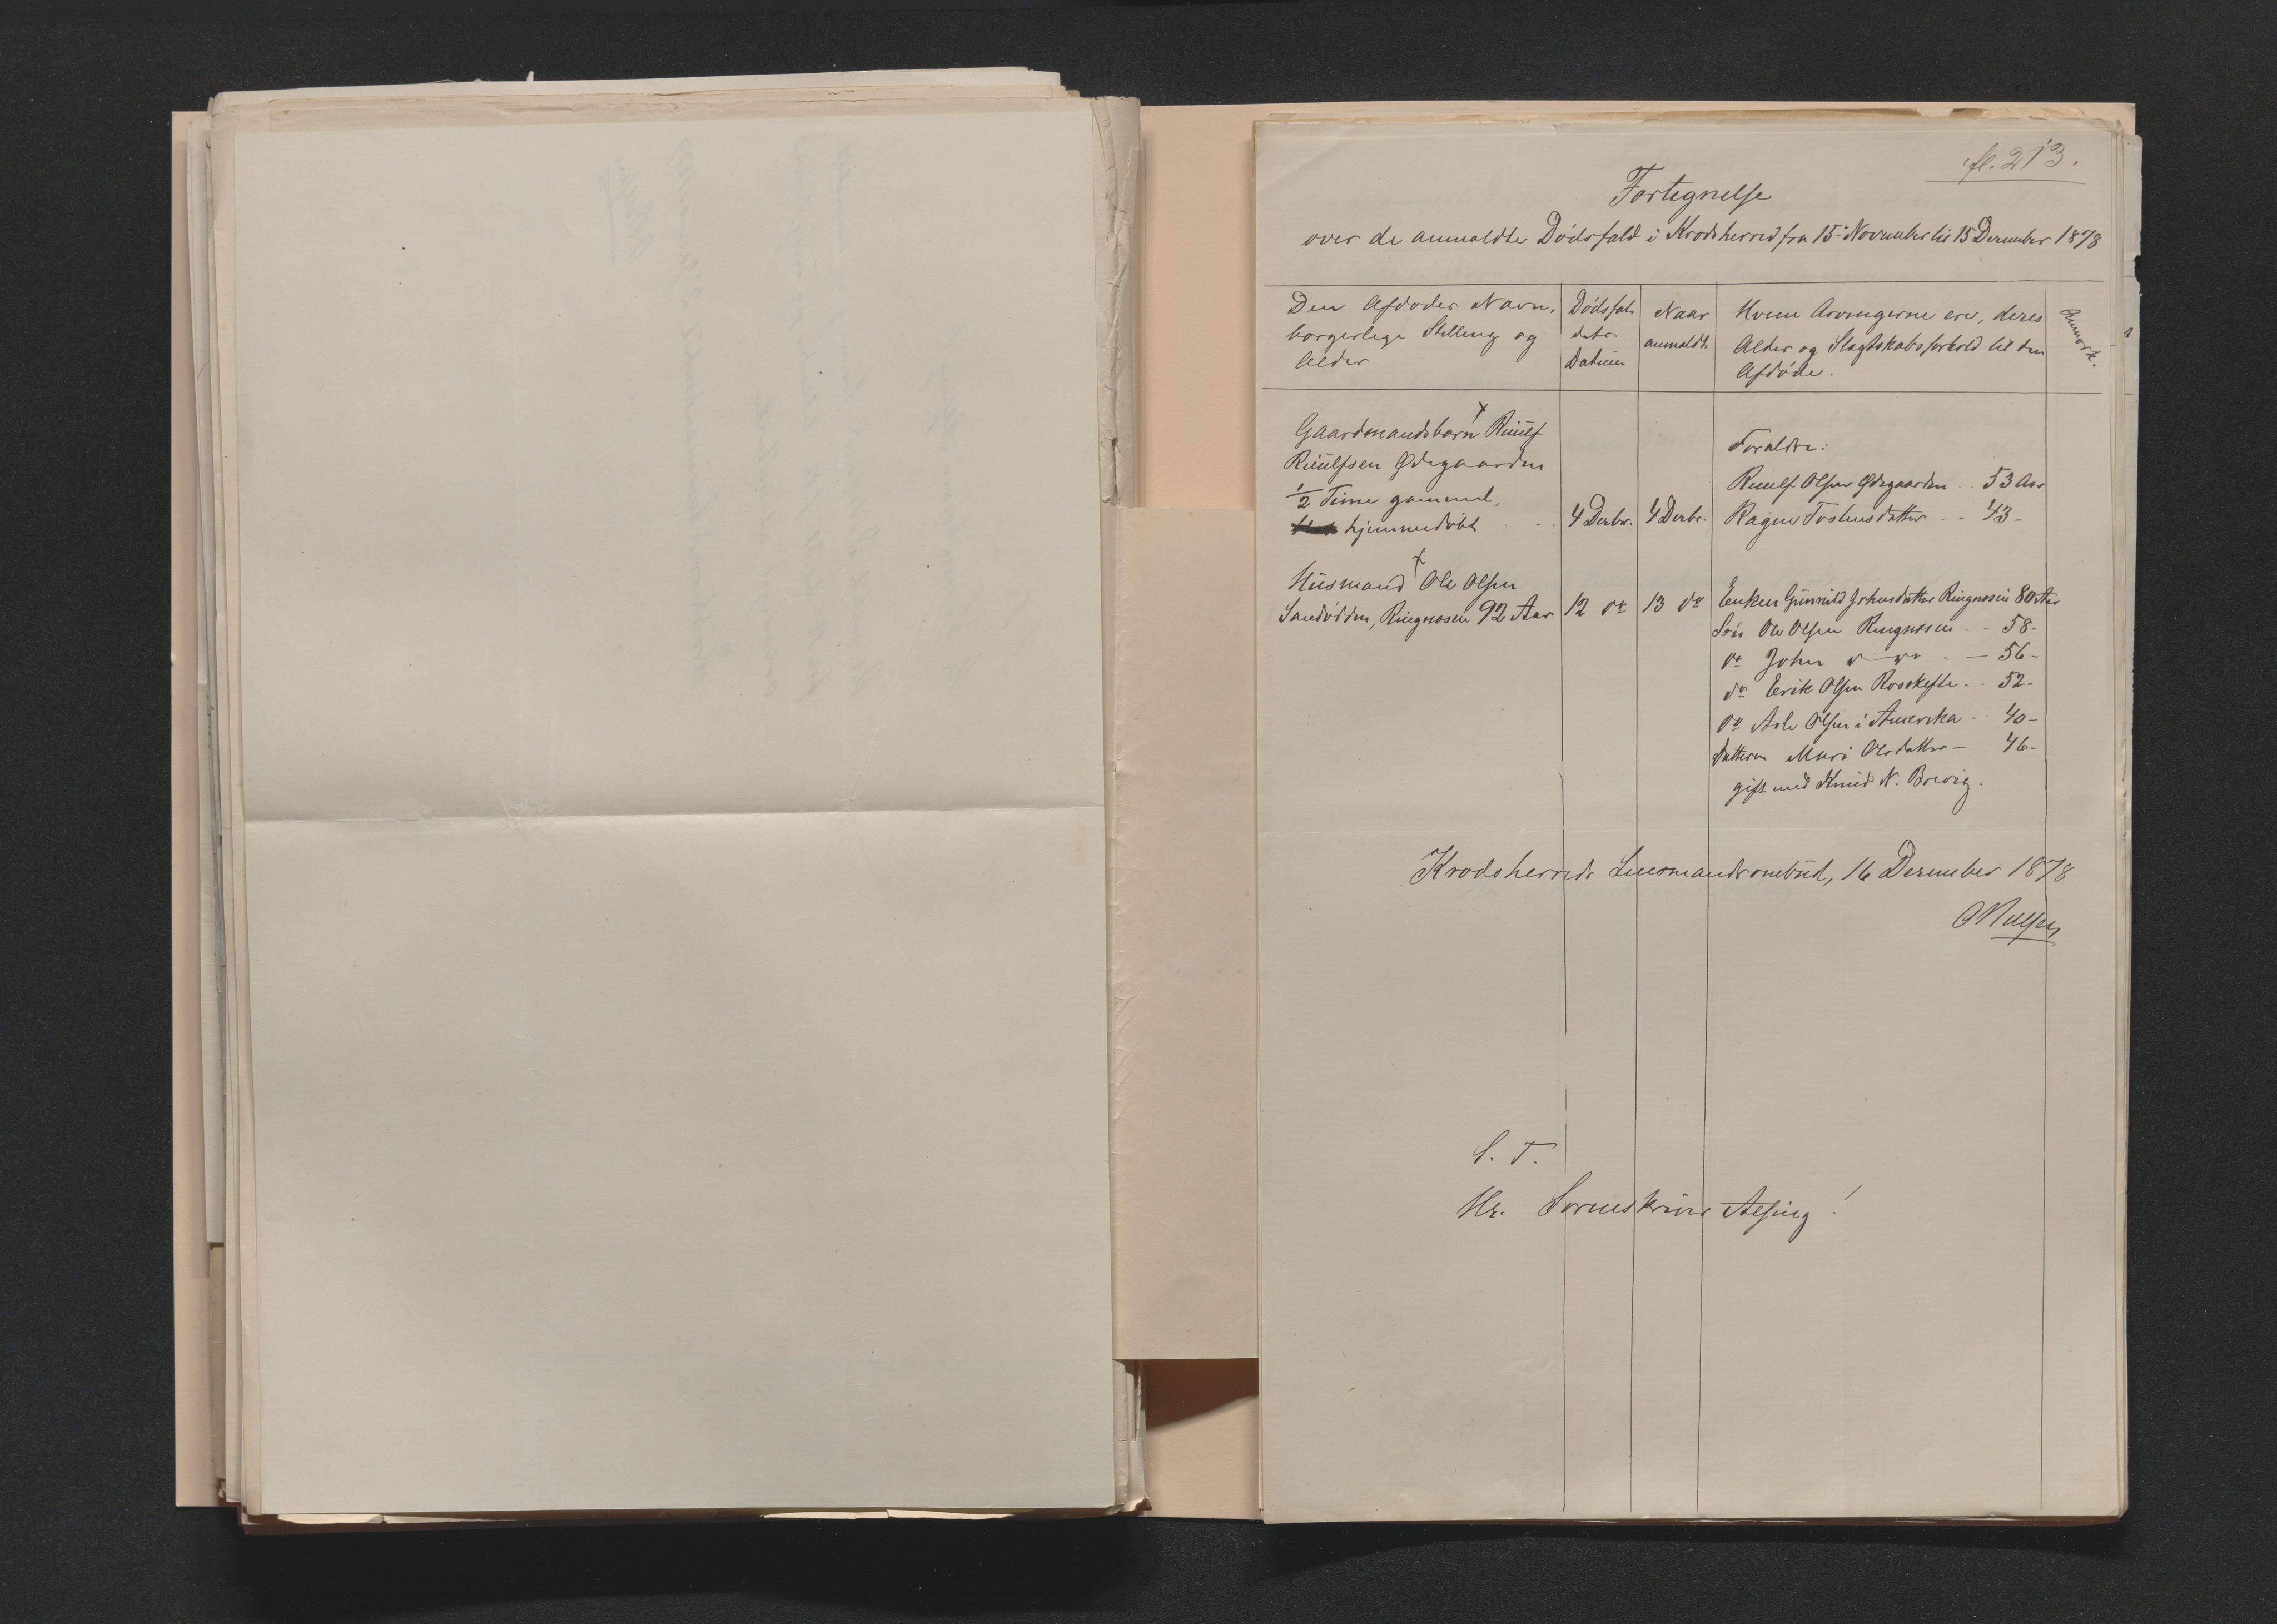 fl. 213.
Fortegnelse
over de anmeldte Dødsfald i Krødsherred fra 15 November til 15 December 1878
Den Afdødes Navn,
borgerlige Stilling og
Alder
Dødsfal-
dets
Datum
Naar
anmeldt.
Hvem Arvingerne ere, deres
Alder og Slægtskabsforhold til den
Afdøde.
Anmærk.
Gaardmandsbarn Ruulf
Ruulfsen Ødegaarden
1/2 Time gammel,
hjemmedøbt 4 Decbr. 4 Decbr.
Forældre:
Ruulf Olsen Ødegaarden 53 Aar
Ragne Tostensdatter - 43 -
Huusmand Ole Olsen
Sandødden, Ringnæsen 92 Aar 12 do 13 do
Enken Gunnild Johnsdatter Ringnæsen 80 Aar
Søn Ole Olsen Ringnæsen - 58 -
do John do do - 56 -
do Erik Olsen - 52 -
do Asle Olsen i Amerika - 40 -
Datteren Mari Olsdatter - 46 -
gift med Knud N. Brevig.
Krødsherreds Lensmandsombud, 16 December 1878
S. T.
Hr. Sorenskriver